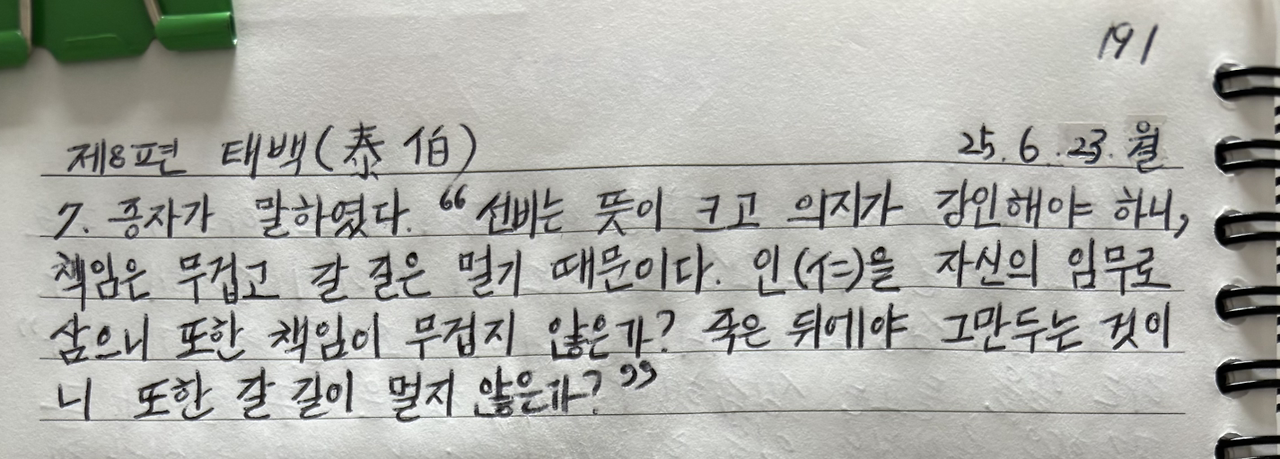 191
제8편 태백(泰伯) 25.6.23.월
7. 증자가 말하였다. “선비는 뜻이 크고 의지가 강인해야 하니,
책임은 무겁고 갈 길은 멀기 때문이다. 인(仁)을 자신의 임무로
삼으니 또한 책임이 무겁지 않은가? 죽은 뒤에야 그만두는 것이
니 또한 갈 길이 멀지 않은가?”